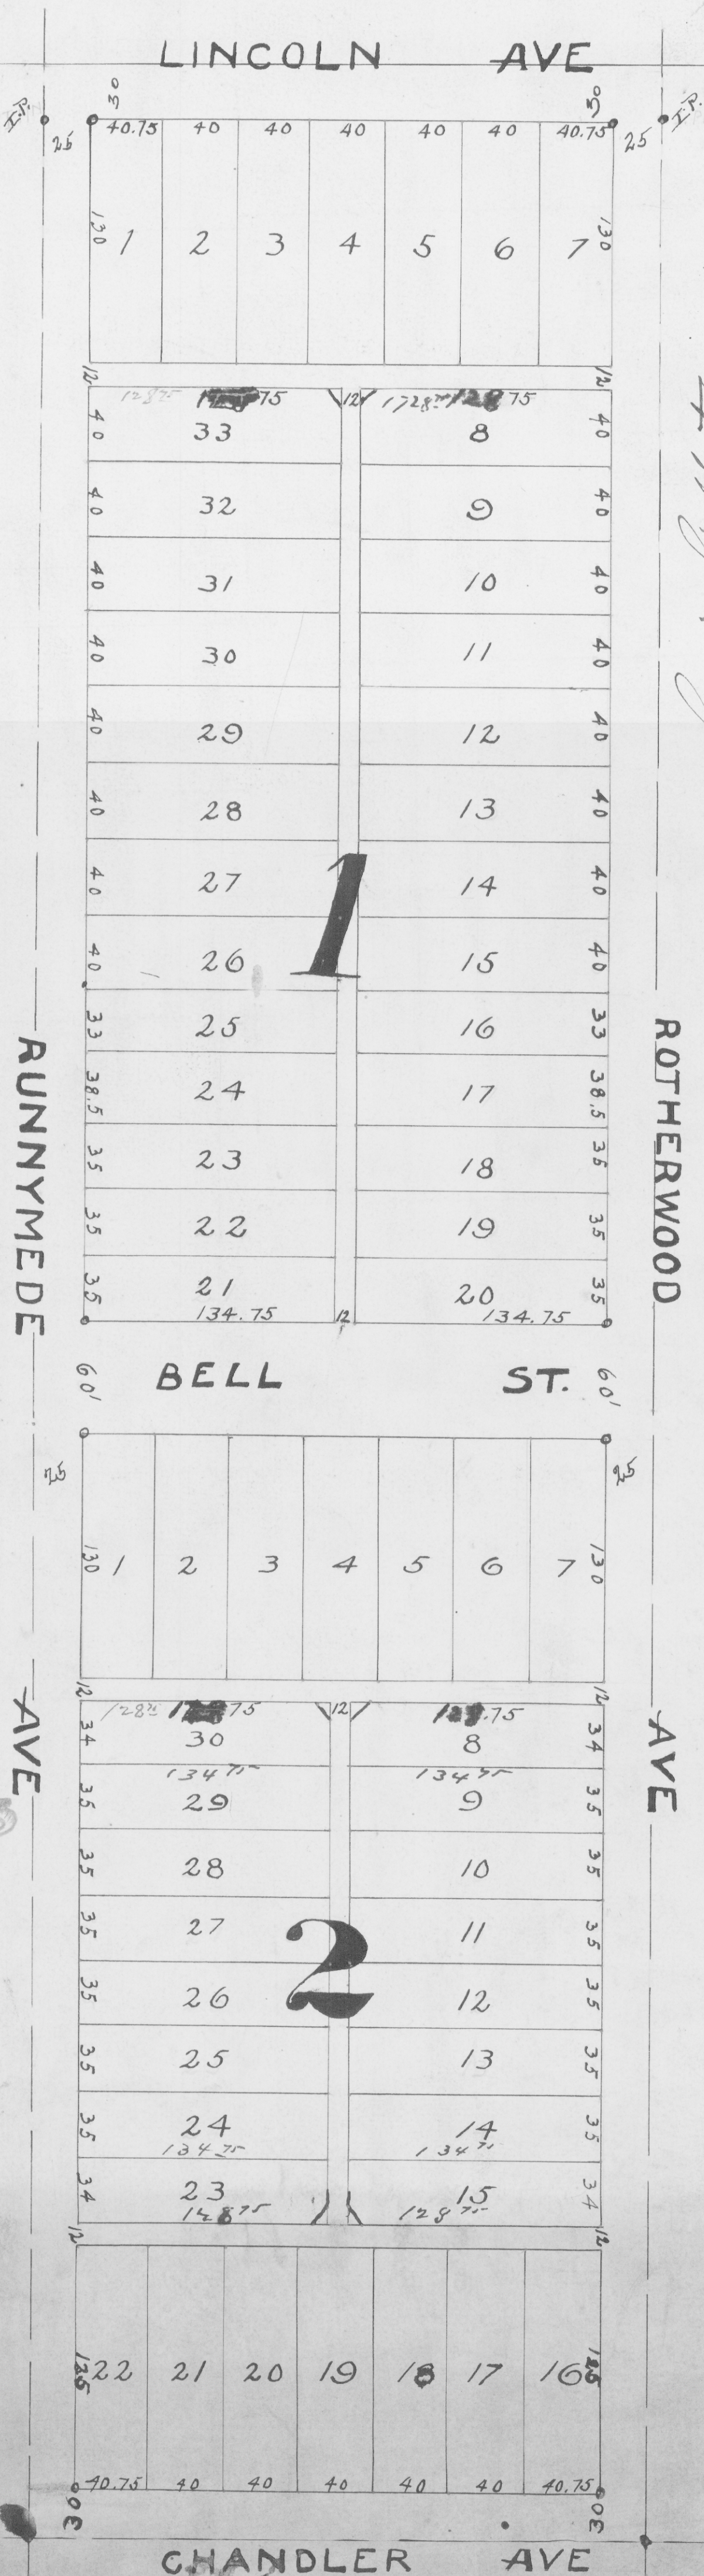 LINCOLN AVE
30 30
I.P. I.P.
25 40.75 40 40 40 40 40 40.75 25
130 1 2 3 4 5 6 7 130
12 12
128 75 75 12 128 75
40 33 8 40
40 32 9 40
40 31 10 40
40 30 11 40
40 29 12 40
40 28 13 40
40 27 14 40
1
40 26 15 40
33 25 16 33
38.5 24 17 38.5
35 23 18 35
35 22 19 35
35 21 20 35
134.75 12 134.75
RUNNYMEDE AVE
ROTHERWOOD AVE
60' BELL ST. 60'
25 25
130 1 2 3 4 5 6 7 130
12 12
128 75 75 12 128.75
34 30 8 34
134 75 134 75
35 29 9 35
35 28 10 35
35 27 11 35
2
35 26 12 35
35 25 13 35
35 24 14 35
134 75 134 75
34 23 15 34
128 75 128 75
12 12
125 22 21 20 19 18 17 16 125
40.75 40 40 40 40 40 40.75
30 30
CHANDLER AVE